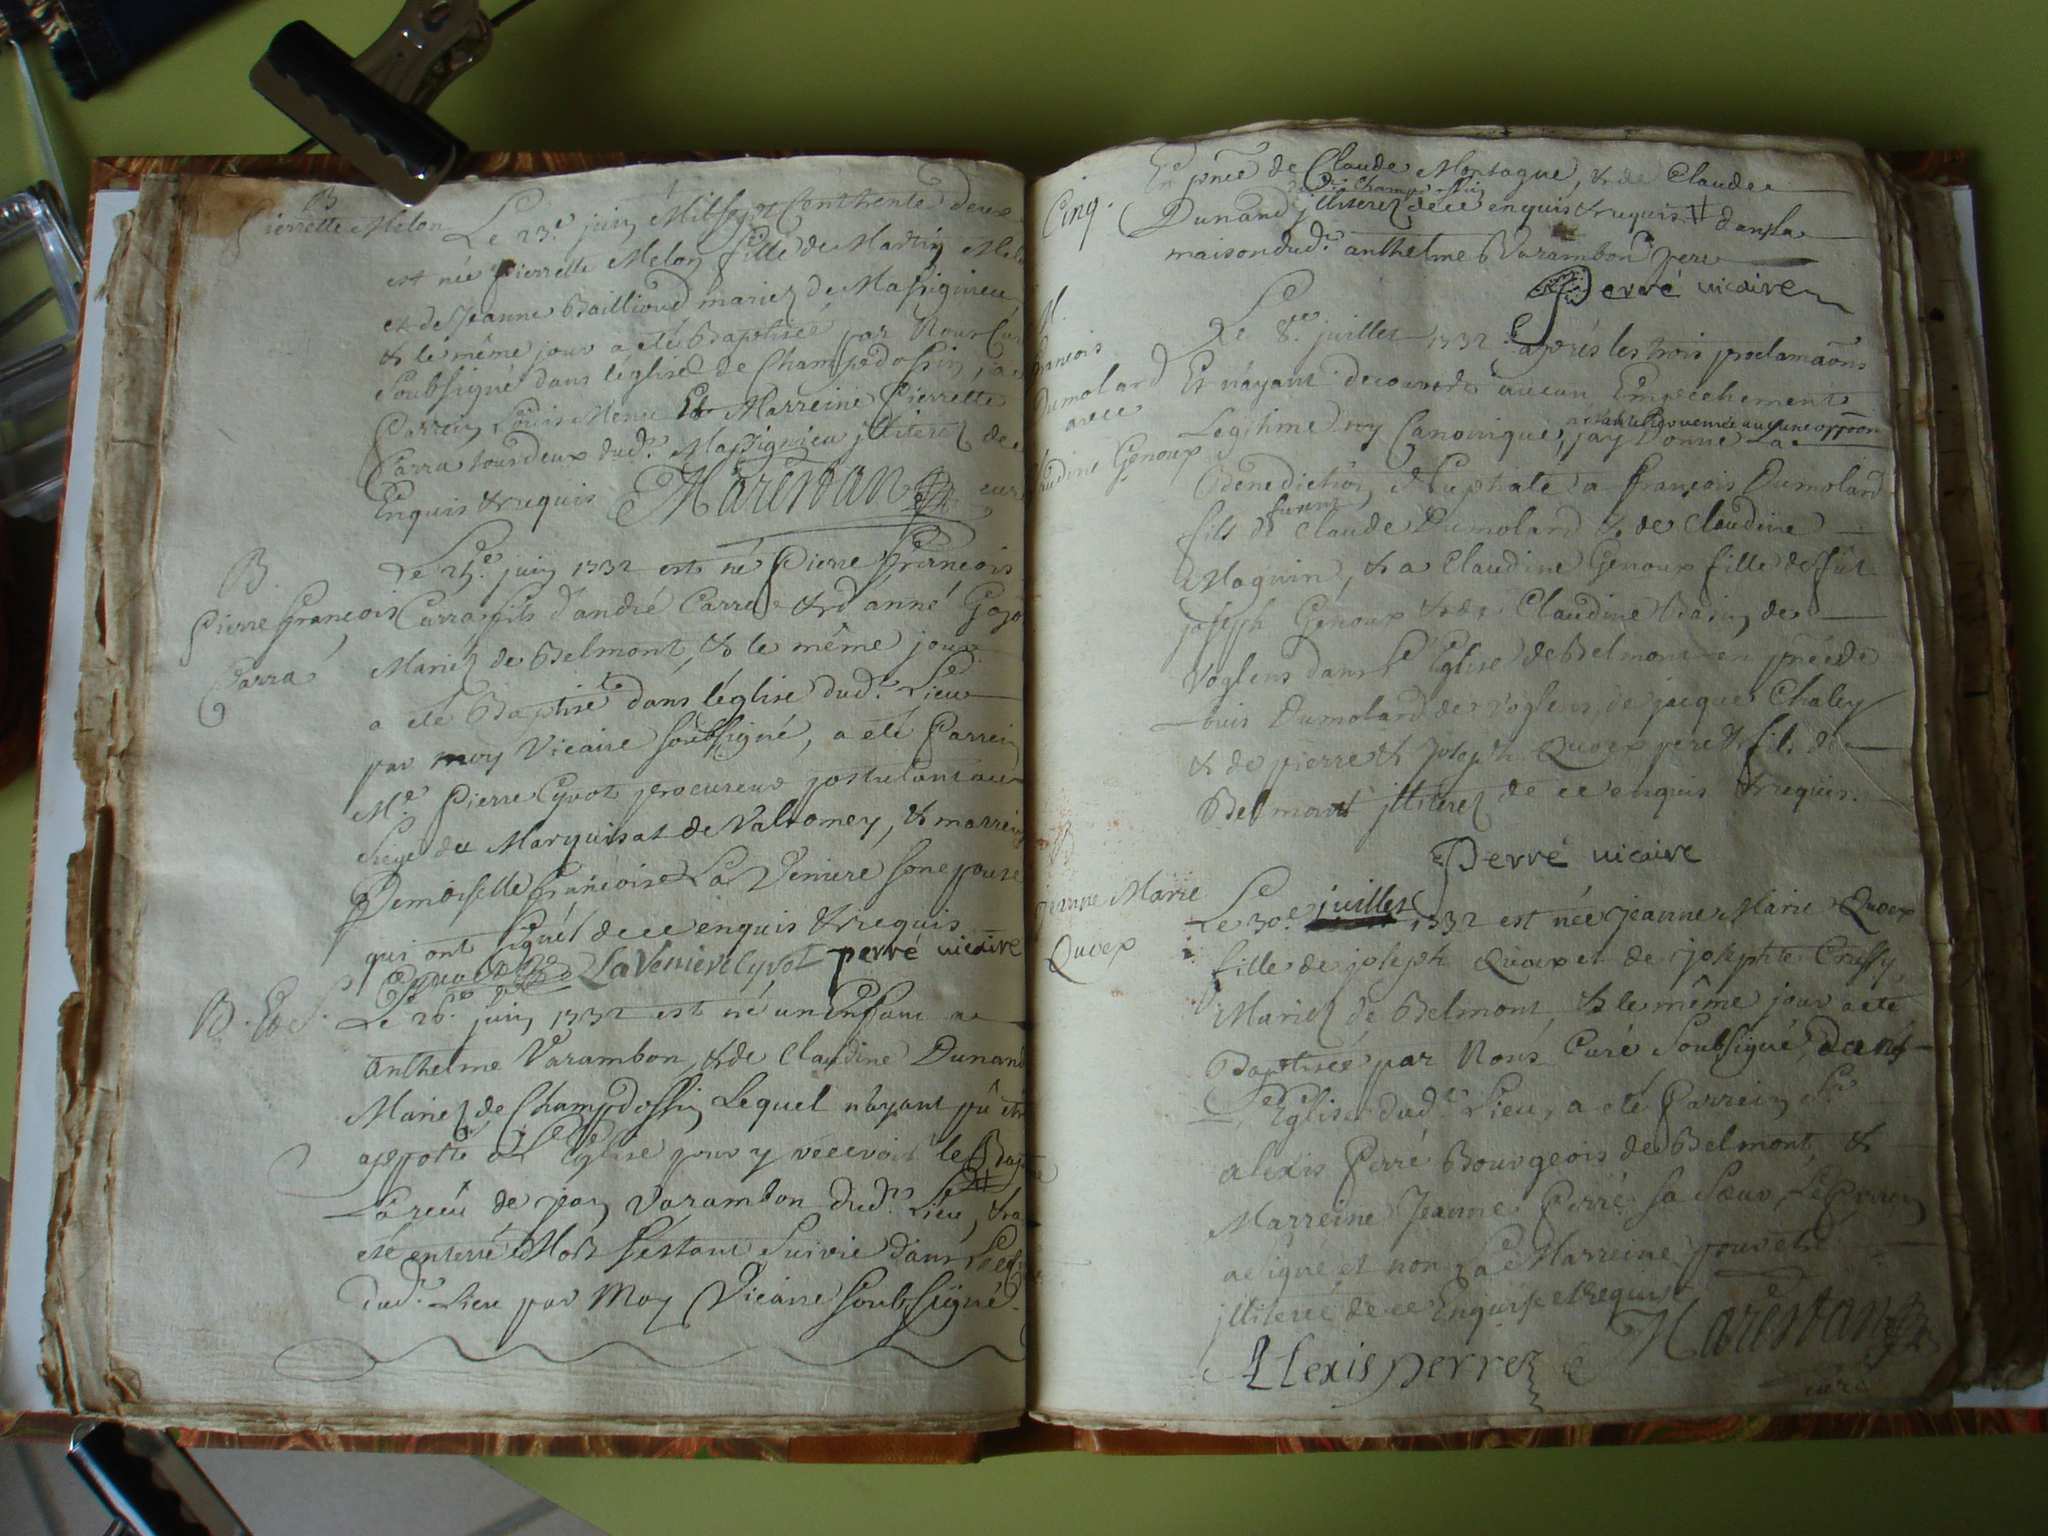 B
Pierrette Melon
Le 23.e juin Mil sept Cent trente deux
est née pierrette Melon fille de Martin Melon
et de Jeanne Baillioud mariez de Massignieu
& le même jour a eté Baptisée par Nous Curé
Soubsigné dans l'église de Champdossin, a eté
Parrein Louis Menu Et Marreine Pierrette
Carra tous deux dud.t Massignieu jlliterez de ce
Enquis & requis Marestan curé
B.
Pierre François
Carra
Le 24.e juin 1732 est né Pierre François
Carra fils d'andré Carra & d'anne Gojo
Mariez de Belmont, & le même jour
a eté Baptisé dans l'église dud.t Lieu
par moy Vicaire soubsigné, a eté Parrein
M.e Pierre Cyvot procureur postulant au
Siege du Marquisat de Valromey, & marreine
Demoiselle Françoise La Veniere son epouse
qui ont signé de ce enquis & requis
La Veniere Cyvot perré vicaire
B. Et S.
Le 26.e juin 1732 est né un Enfant a
Anthelme Varambon, & de Claudine Dunand
Mariez de Champdossin Lequel n'ayant pû être
apporté a L'Eglise pour y recevoir le Bapt
La reçu de Varambon dud.t Lieu, & a
eté enterré Mort s'estant Suivie dans
dud.t Lieu par Moy Vicaire soubsigné.
En pñce de Claude Montague, & de Claude
Cinq.
Dunand jlliterez de ce enquis & requis # dans la
maison dud.t anthelme Varambon pere
Perré vicaire
M.
François
Dumolard
avec
Claudine Genoux
Le 8.e juillet 1732 après les trois proclamaõns
Et n'ayant decouvert aucun Empechement
Legitime ny Canonique, n'étant survenüe aucune oppoõn jay Donné La
Benediction Nuptiale a françois Dumolard
fils de funt Claude Dumolard & de Claudine
Maguin, & a Claudine Genoux fille de fût
joseph Genoux & de Claudine Basin de
Voglens dans L'Eglise de Belmont en pñce de
Louis Dumolard de Voglens, de jacque Chaley
& de pierre & Joseph Quoex pere & fils de
Belmont jlliterez de ce enquis & requis.
Perré vicaire
B
Jeanne Marie
Quoex
Le 30.e juillet 1732 est née Jeanne Marie Quoex
fille de joseph Quoex et de josephte Crussy
Mariez de Belmont, & le même jour a eté
Baptisée par Nous Curé Soubsigné, dans
L'Eglise dud.t Lieu, a eté Parrein Sr
alexis Perré Bourgeois de Belmont, &
Marreine Jeanne Perré sa Sœur, Le Parrein
a signé et non La Marreine pour etre
jlliterée de ce Enquise et requise
Marestan
Alexis perrez curé